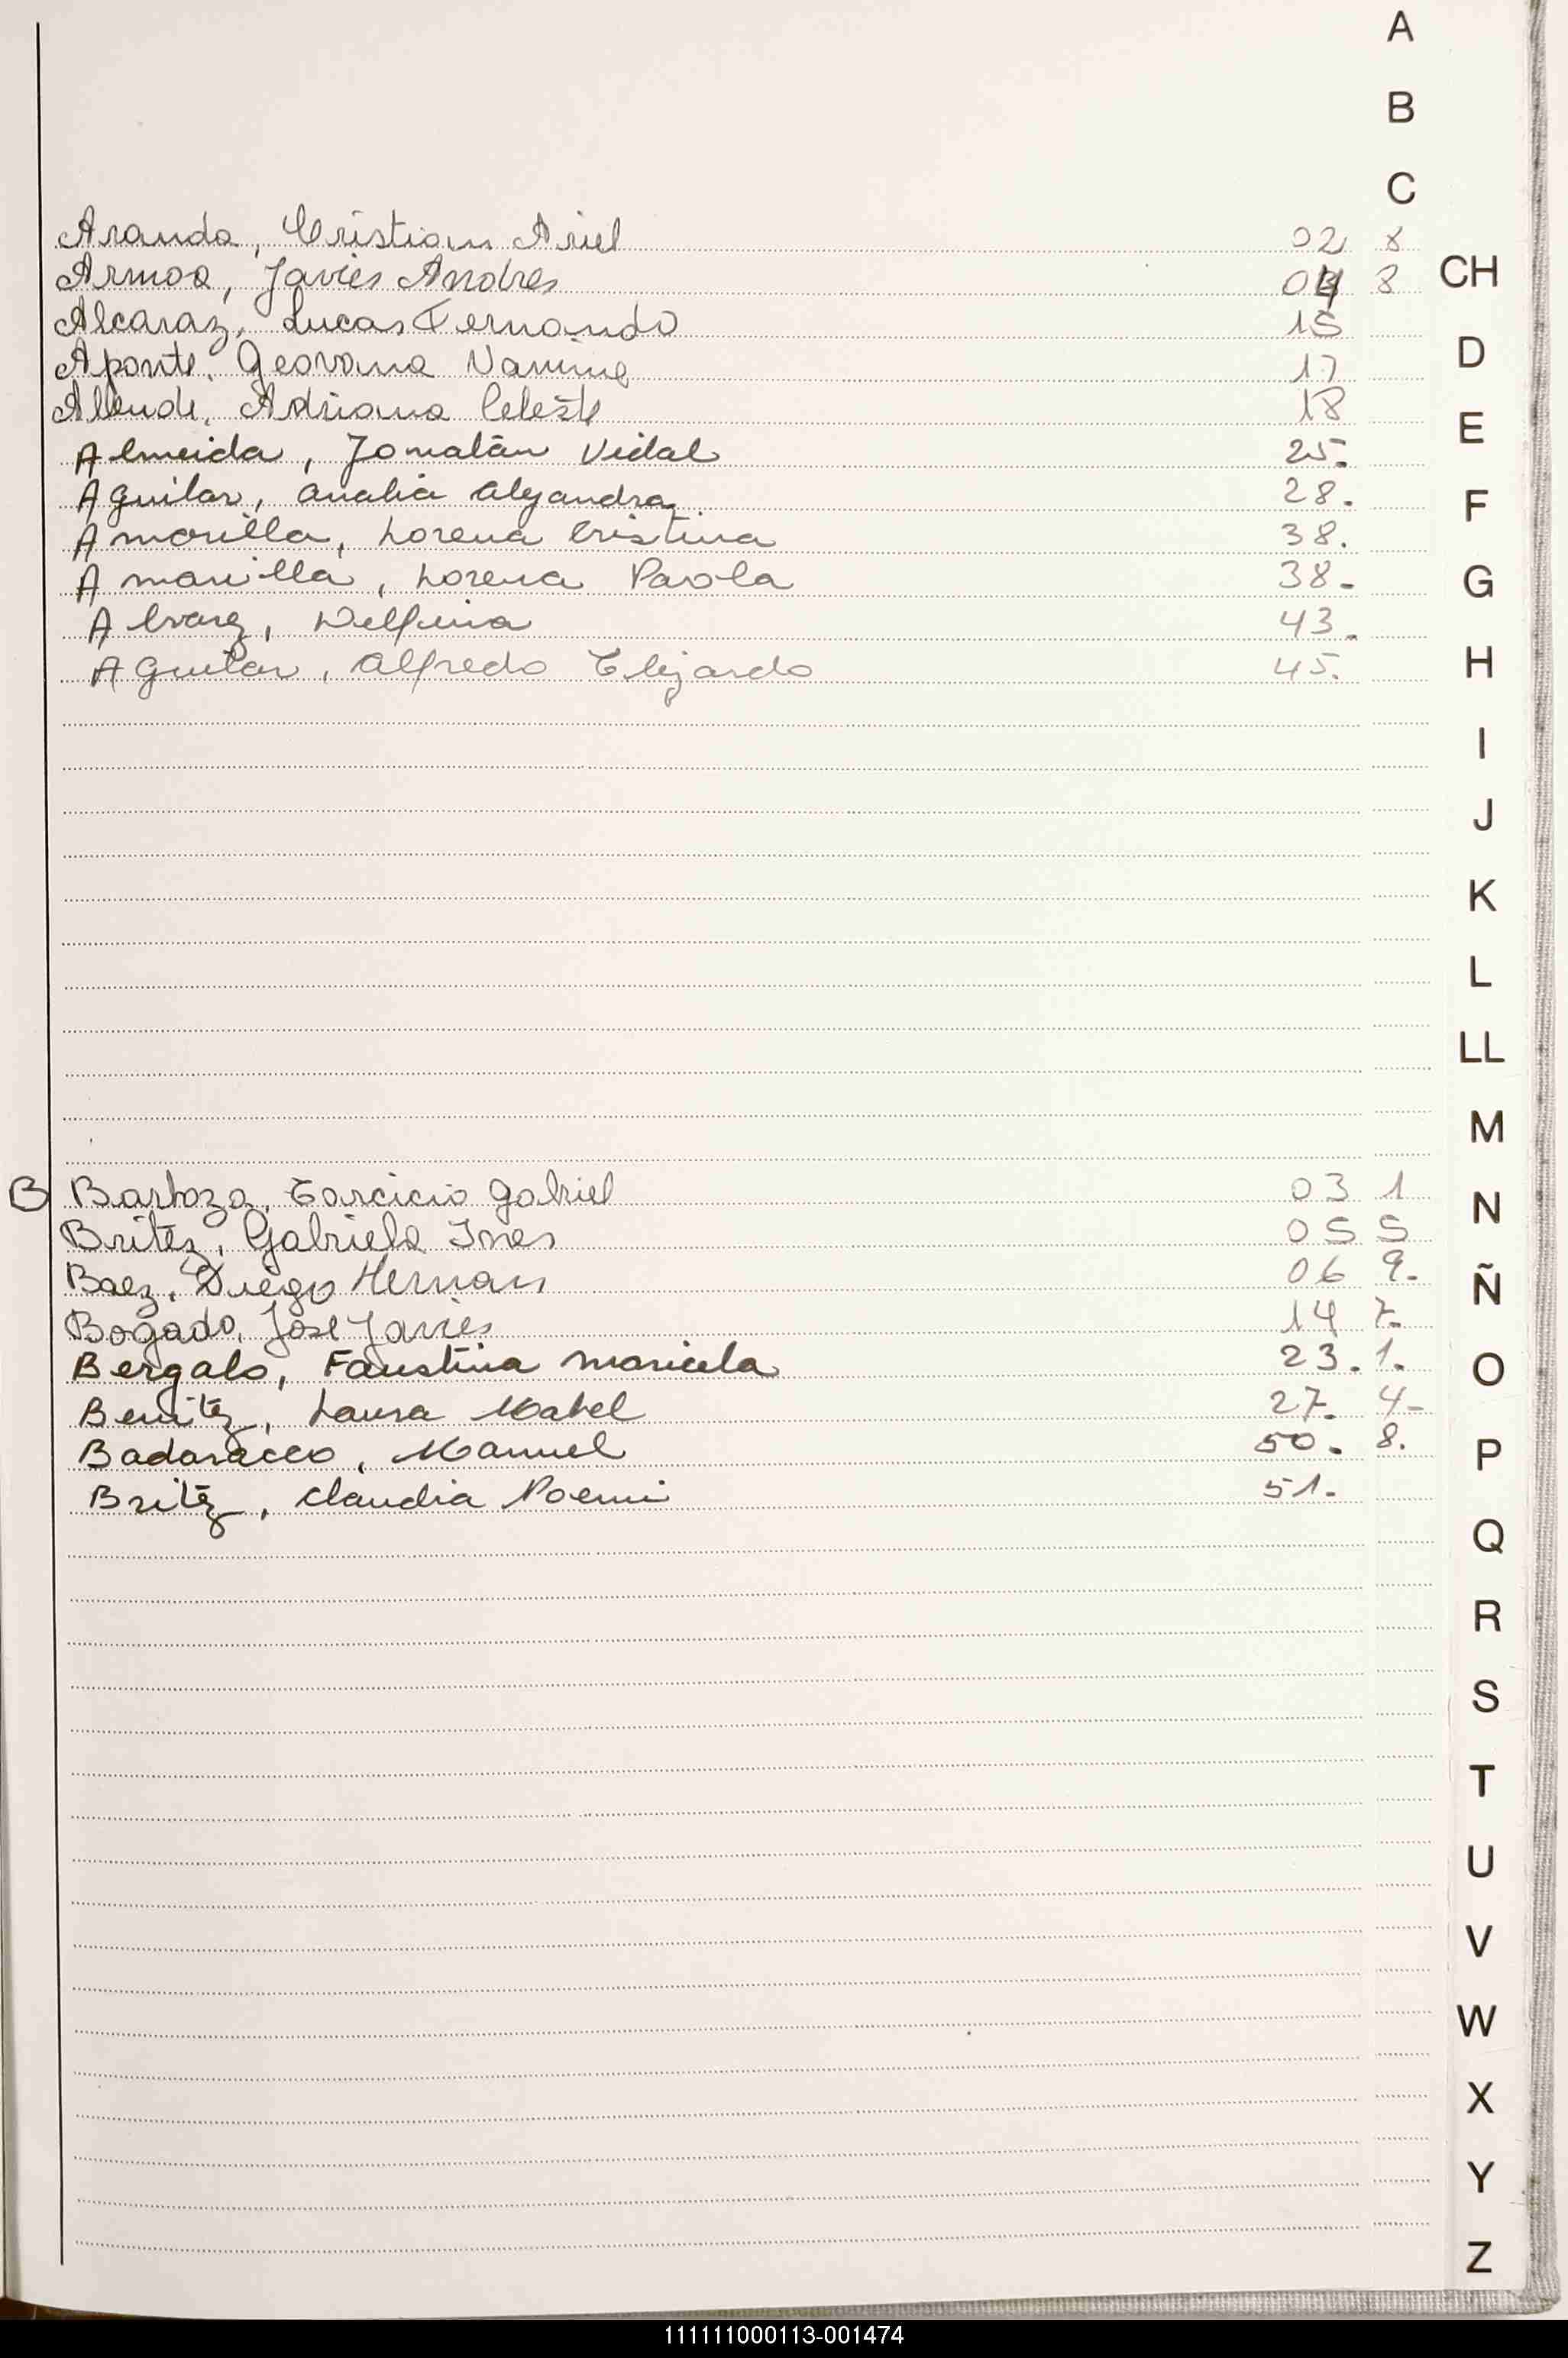 A
B
C
Aranda, Cristian Ariel 02 8
Armoa, Javier Andres 04 8
Alcaraz, Lucas Fernando 15
Aponte, Geovana Vanina 17
Allende, Adriana Celeste 18
Almeida, Jonatán Vidal 25.
Aguilar, Analia Alejandra 28.
Amarilla, Lorena Cristina 38.
Amarilla, Lorena Paola 38.
Alvarez, Delfina 43.
Aguilar, Alfredo 45.
B Barboza, Gabriel 03 1
Britez, Gabriela Ines 05 5
Baez, Diego Hernan 06 9.
Bogado, Jose Javier 14 7.
Bergalo, Faustina Maricela 23. 1.
Benitez, Laura Mabel 27. 4-
Badaracco, Manuel 50. 8.
Britez, Claudia Noemi 51.
CH
D
E
F
G
H
I
J
K
L
LL
M
N
Ñ
O
P
Q
R
S
T
U
V
W
X
Y
Z
111111000113-001474